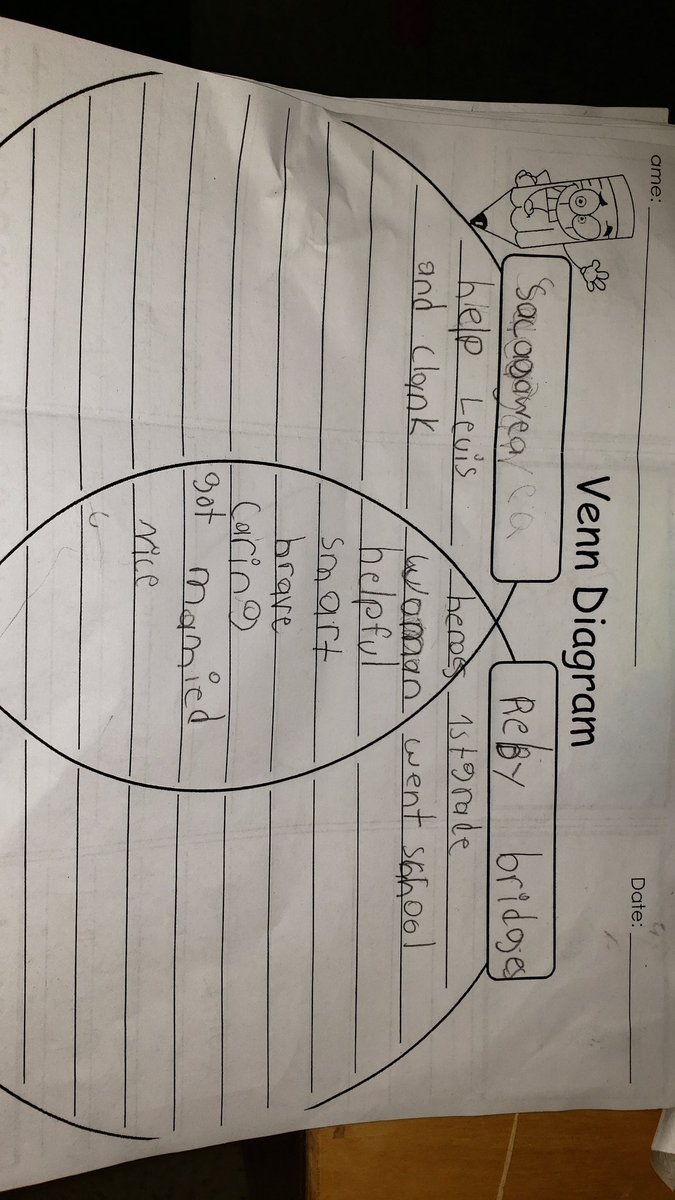 ame: Date:
Venn Diagram
Sacagawea ReBy bridges
help Lewis heros 1st grade
and Clark Woman went school
helpful
smart
brave
Caring
got married
nice